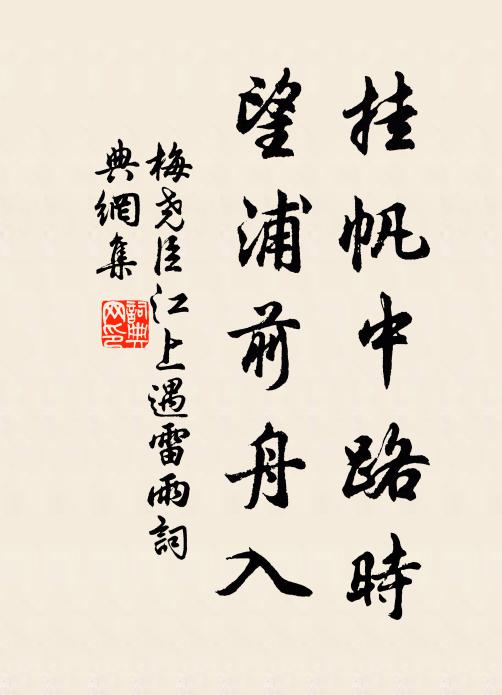 挂帆中路時
望浦前舟入
梅尧臣江上遇雷雨詞
典網集
詞典网印